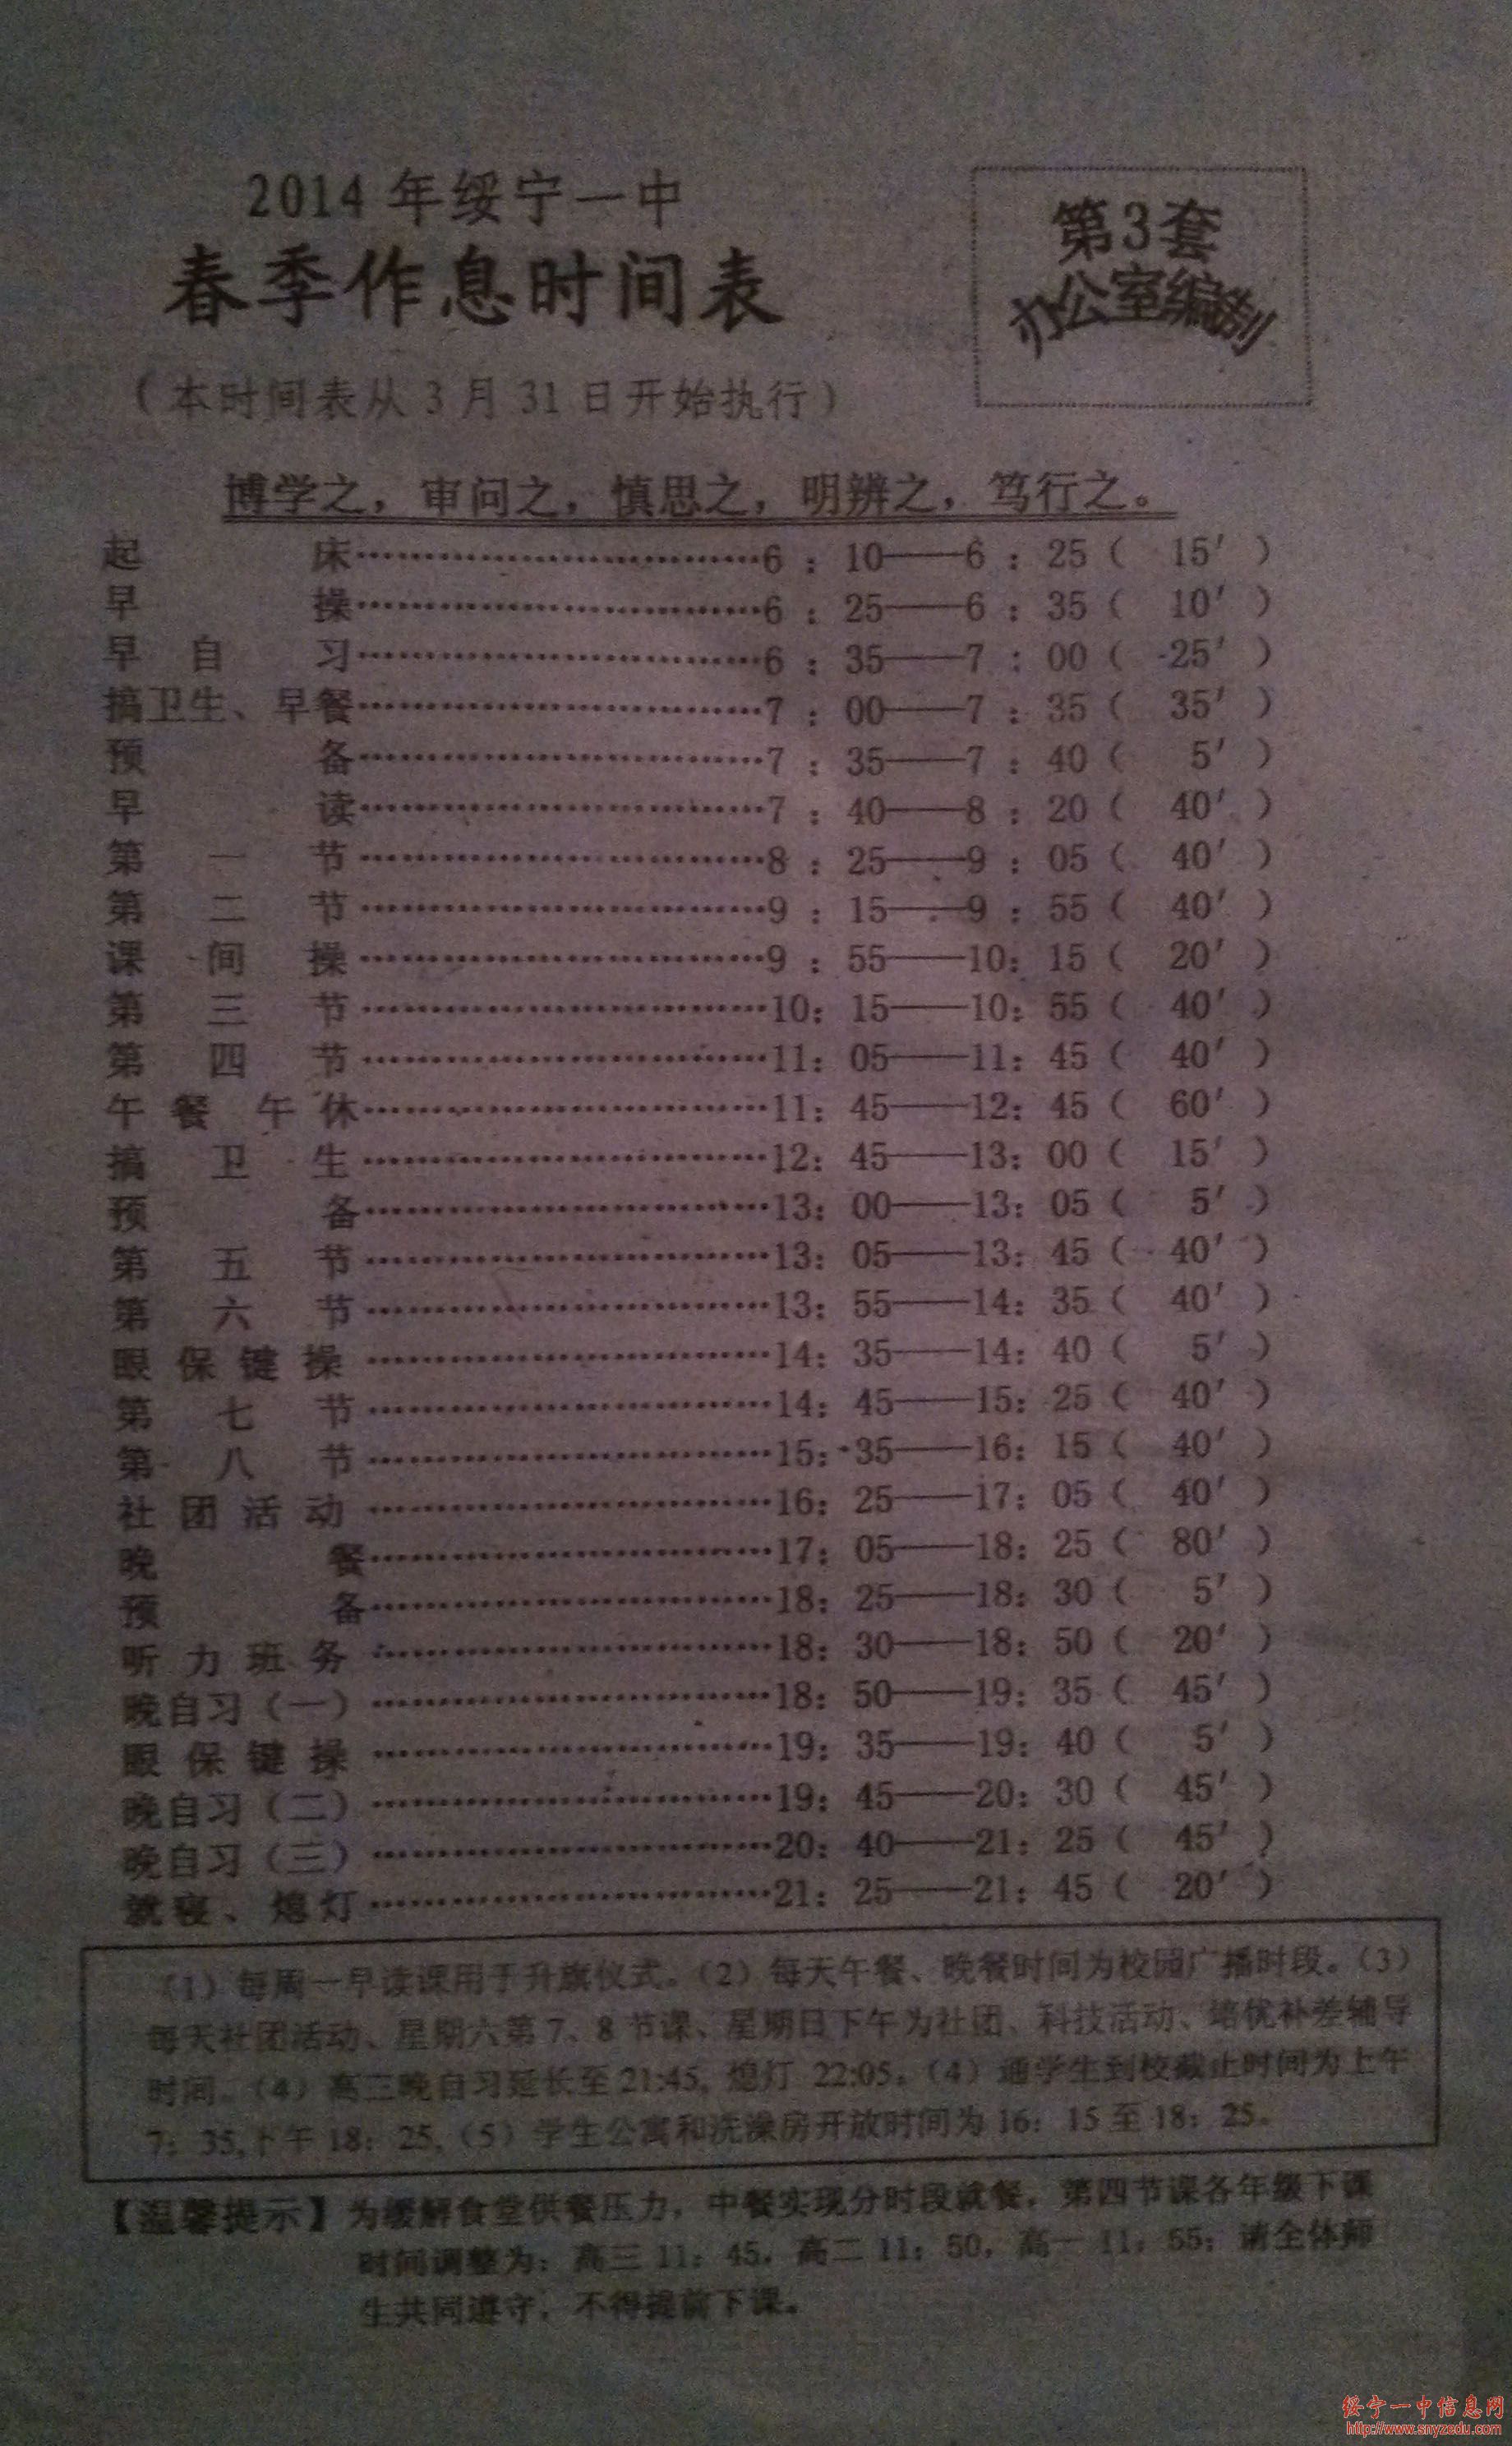 2014年绥宁一中
春季作息时间表
第3套
办公室编制
（本时间表从3月31日开始执行）
博学之，审问之，慎思之，明辨之，笃行之。
起床…………………………6：10——6：25（15′）
早操…………………………6：25——6：35（10′）
早自习…………………………6：35——7：00（25′）
搞卫生、早餐…………………………7：00——7：35（35′）
预备…………………………7：35——7：40（5′）
早读…………………………7：40——8：20（40′）
第一节…………………………8：25——9：05（40′）
第二节…………………………9：15——9：55（40′）
课间操…………………………9：55——10：15（20′）
第三节…………………………10：15——10：55（40′）
第四节…………………………11：05——11：45（40′）
午餐午休…………………………11：45——12：45（60′）
搞卫生…………………………12：45——13：00（15′）
预备…………………………13：00——13：05（5′）
第五节…………………………13：05——13：45（40′）
第六节…………………………13：55——14：35（40′）
眼保键操…………………………14：35——14：40（5′）
第七节…………………………14：45——15：25（40′）
第八节…………………………15：35——16：15（40′）
社团活动…………………………16：25——17：05（40′）
晚餐…………………………17：05——18：25（80′）
预备…………………………18：25——18：30（5′）
听力班务…………………………18：30——18：50（20′）
晚自习（一）…………………………18：50——19：35（45′）
眼保键操…………………………19：35——19：40（5′）
晚自习（二）…………………………19：45——20：30（45′）
晚自习（三）…………………………20：40——21：25（45′）
就寝、熄灯…………………………21：25——21：45（20′）
（1）每周一早读课用于升旗仪式。（2）每天午餐、晚餐时间为校园广播时段。（3）
每天社团活动、星期六第7、8节课、星期日下午为社团、科技活动、培优补差辅导
时间。（4）高三晚自习延长至21:45，熄灯 22:05。（4）通学生到校截止时间为上午
7：35,下午18：25,（5）学生公寓和洗澡房开放时间为16：15至18：25。
【温馨提示】为缓解食堂供餐压力，中餐实现分时段就餐，第四节课各年级下课
时间调整为：高三11：45，高二11：50，高一11：55；请全体师
生共同遵守，不得提前下课。
绥宁一中信息网
http://www.snyzedu.com